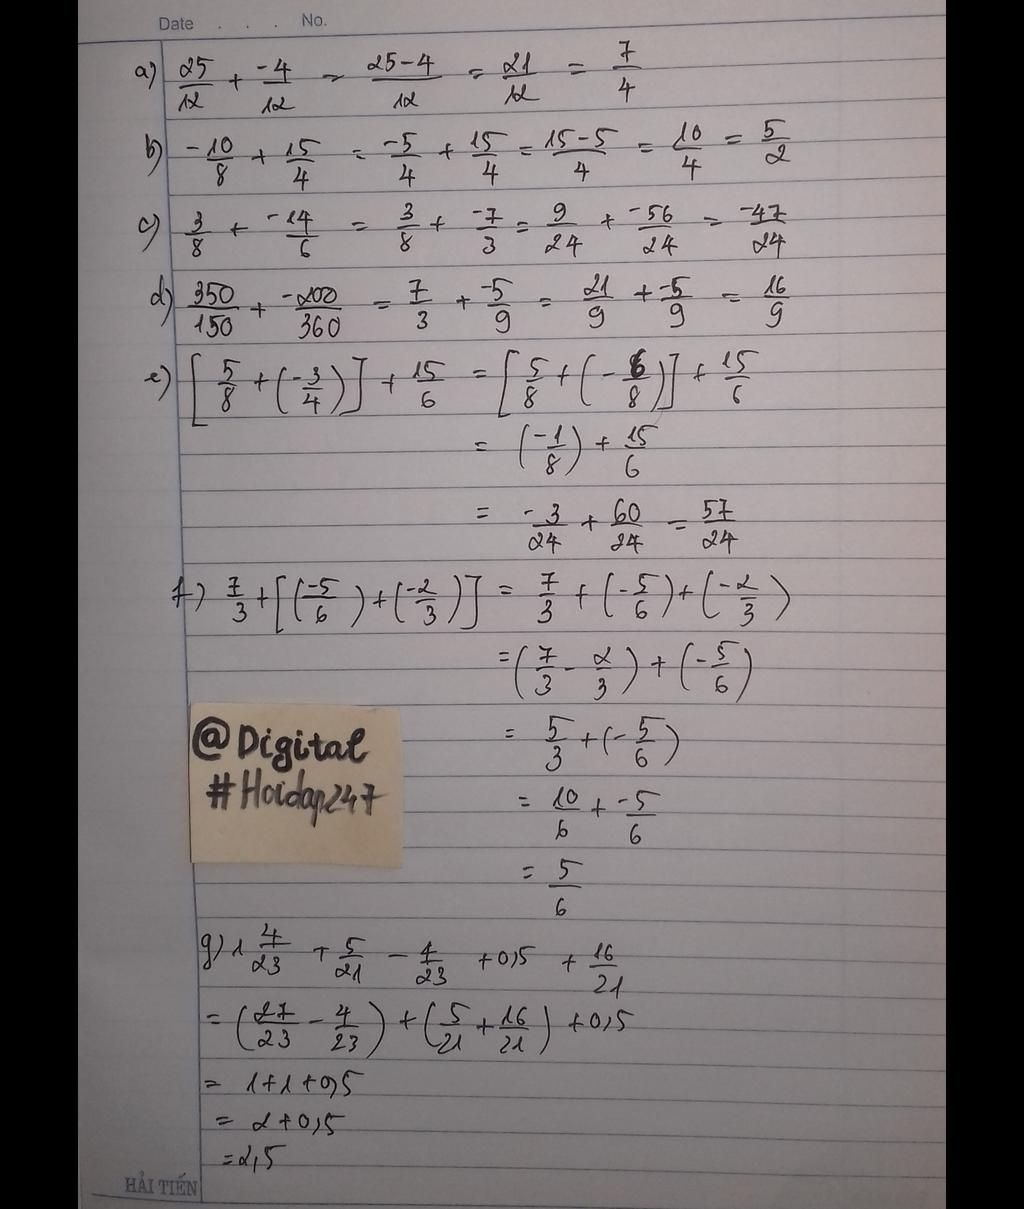 Date . . . No.
a) 25/12 + -4/12 = 25-4/12 = 21/12 = 7/4
b) -10/8 + 15/4 = -5/4 + 15/4 = 15-5/4 = 10/4 = 5/2
c) 3/8 + -14/6 = 3/8 + -7/3 = 9/24 + -56/24 = -47/24
d) 350/150 + -200/360 = 7/3 + -5/9 = 21/9 + -5/9 = 16/9
e) [5/8 + (-3/4)] + 15/6 = [5/8 + (-6/8)] + 15/6
= (-1/8) + 15/6
= -3/24 + 60/24 = 57/24
f) 7/3 + [(-5/6) + (-2/3)] = 7/3 + (-5/6) + (-2/3)
= (7/3 - 2/3) + (-5/6)
= 5/3 + (-5/6)
= 10/6 + -5/6
= 5/6
@Digital
#Hoidap247
g) 1 4/23 + 5/21 - 4/23 + 0,5 + 16/21
= (27/23 - 4/23) + (5/21 + 16/21) + 0,5
= 1+1+0,5
= 2+0,5
=2,5
HẢI TIẾN